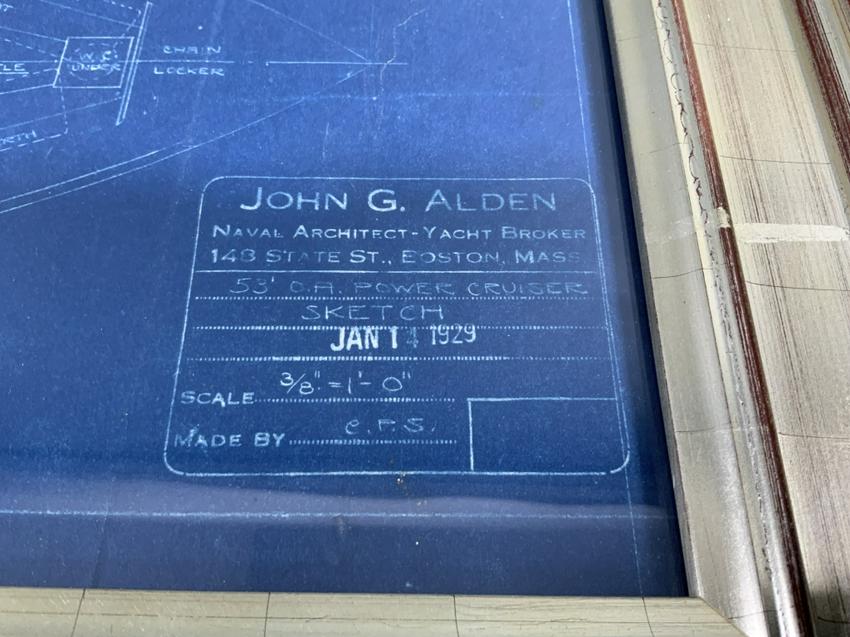 CHAIN
LOCKER
W.C.
UNDER
JOHN G. ALDEN
NAVAL ARCHITECT - YACHT BROKER
148 STATE ST., BOSTON, MASS.
53' O.A. POWER CRUISER
SKETCH
JAN 14 1929
SCALE 3/8" = 1'- 0"
MADE BY C.F.S.